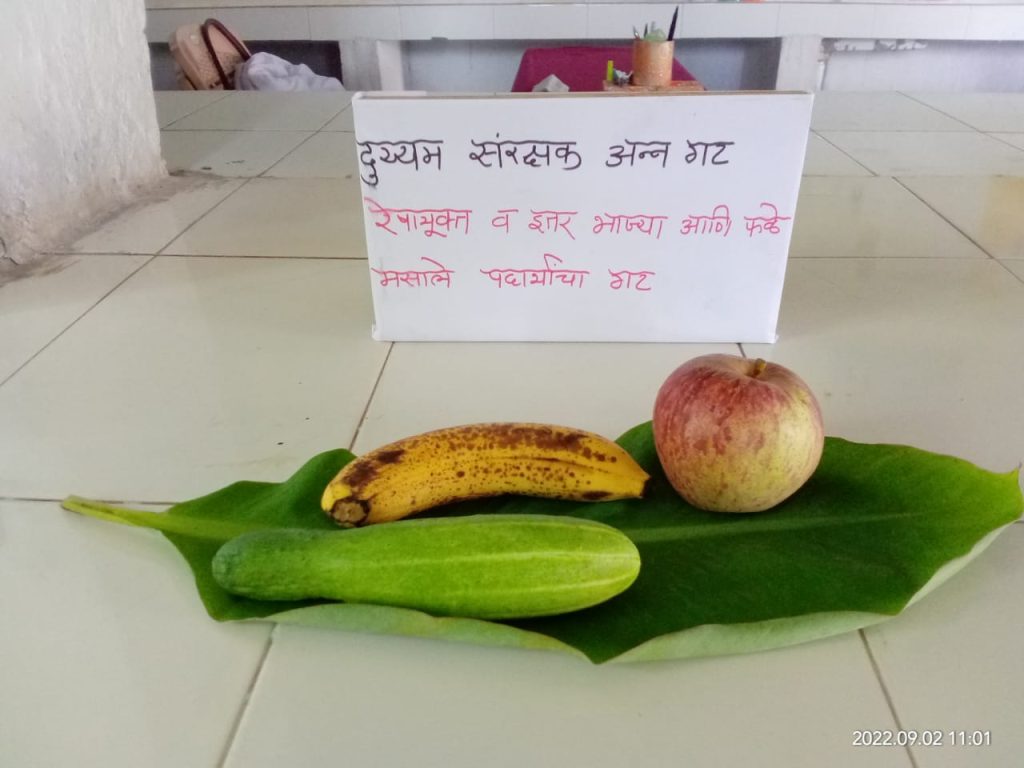 दुय्यम संरक्षक अन्न गट
रेषायुक्त व इतर भाज्या आणि फळे
मसाले पदार्थांचा गट
2022.09.02 11:01